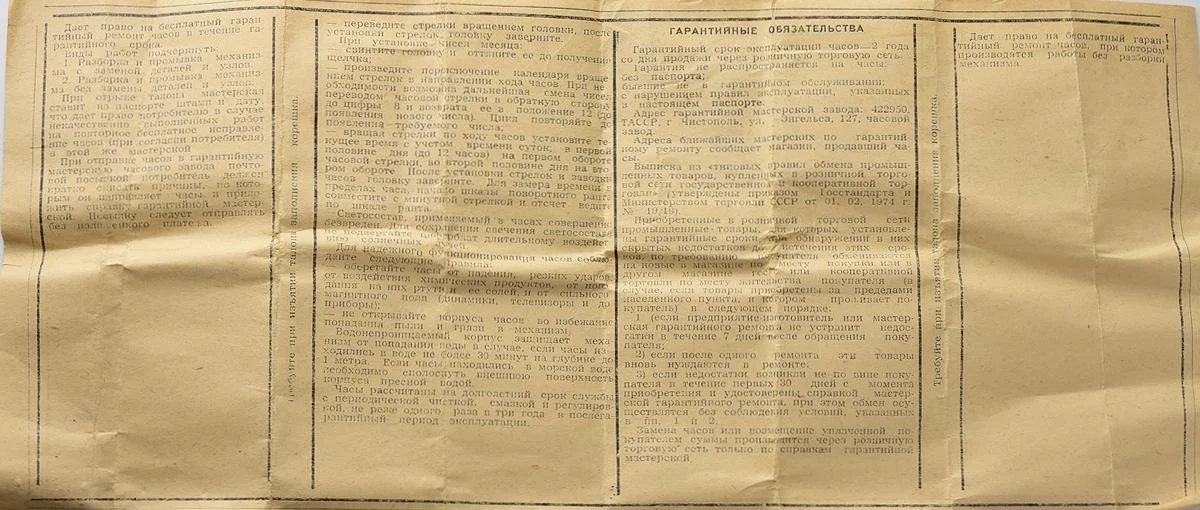 Дает право на бесплатный гаран-
тийный ремонт часов в течение га-
рантийного срока.
Виды работ подчеркнуть:
1. Разборка и промывка механиз-
ма с заменой деталей и узлов.
2. Разборка и промывка механиз-
ма без замены деталей и узлов.
При отрыве талона мастерская
ставит на паспорте штамп и дату,
что дает право потребителю в случае
некачественно выполненных работ
на повторное бесплатное исправле-
ние часов (при согласии потребителя)
в этой же мастерской
При отправке часов в гарантийную
мастерскую часового завода почто-
вой посылкой потребитель должен
кратко описать причины, по кото-
рым он направляет часы, и прило-
жить справку гарантийной мастер-
ской. Посылку следует отправлять
без наложенного платежа.
Требуйте при изъятии талона заполнения корешка.
— переведите стрелки вращением головки, после
установки стрелок головку заверните.
При установке чисел месяца:
— свинтите головку и оттяните ее до получения
щелчка;
— произведите переключение календаря враще-
нием стрелок в направлении хода часов При не-
обходимости возможна дальнейшая смена чисел
переводом часовой стрелки в обратную сторону
до цифры 8 и возврата ее в положение 12 (до
появления нового числа). Цикл повторяйте до
появления требуемого числа;
— вращая стрелки по ходу часов установите те-
кущее время с учетом времени суток, в первой
половине дня (до 12 часов) на первом обороте
часовой стрелки, во второй половине дня на вто-
ром обороте После установки стрелок и заводки
часов головку заверните. Для замера времени в
пределах часа, начало шкалы поворотного ранта
совместите с минутной стрелкой и отсчет ведите
по шкале ранта.
Светосостав, применяемый в часах совершенно
безвреден. Для сохранения свечения светосостава
не подвергайте циферблат длительному воздейст-
вию солнечных лучей.
Для надежного функционирования часов соблю-
дайте следующие правила:
оберегайте часы от падения, резких ударов,
от воздействия химических продуктов, от попа-
дания на них ртути и ее солей, и от сильного
магнитного поля (динамики, телевизоры и др.
приборы);
— не открывайте корпуса часов во избежание
попадания пыли и грязи в механизм.
Водонепроницаемый корпус защищает меха-
низм от попадания воды в случае, если часы на-
ходились в воде не более 30 минут на глубине до
1 метра. Если часы находились в морской воде
необходимо сполоснуть внешнюю поверхность
корпуса пресной водой.
Часы рассчитаны на долголетний срок службы
с периодической чисткой, смазкой и регулиров-
кой, не реже одного раза в три года в послега-
рантийный период эксплуатации.
ГАРАНТИЙНЫЕ ОБЯЗАТЕЛЬСТВА
Гарантийный срок эксплуатации часов—2 года
со дня продажи через розничную торговую сеть.
Гарантия не распространяется на часы:
без паспорта;
бывшие не в гарантийном обслуживании;
с нарушением правил эксплуатации, указанных
в настоящем паспорте.
Адрес гарантийной мастерской завода: 422950,
ТАССР, г Чистополь, ул. Энгельса, 127, часовой
завод.
Адреса ближайших мастерских по гарантий-
ному ремонту сообщает магазин, продавший ча-
сы.
Выписка из «типовых правил обмена промыш-
ленных товаров, купленных в розничной торго-
вой сети государственной и кооперативной тор-
говли» (утверждены приказом Госстандарта и
Министерством торговли СССР от 01. 02. 1974 г.
№ 19/18).
Приобретенные в розничной торговой сети
промышленные товары, для которых установле-
ны гарантийные сроки, при обнаружении в них
скрытых недостатков до истечения этих сро-
ков, по требованию покупателя обмениваются
на новые в магазине по месту покупки или в
другом магазине гос или кооперативной
торговли по месту жительства покупателя (в
случае, если товары приобретены за пределами
населенного пункта, в котором проживает по-
купатель) в следующем порядке:
1 (если предприятие-изготовитель или мастер-
ская гарантийного ремонта не устранит недос-
татки в течение 7 дней после обращения поку-
пателя;
2) если после одного ремонта эти товары
вновь нуждаются в ремонте;
3) если недостатки возникли не по вине поку-
пателя в течение первых 30 дней с момента
приобретения и удостоверены справкой мастер-
ской гарантийного ремонта, при этом обмен осу-
ществляется без соблюдения условий, указанных
в пп. 1 и 2.
Замена часов или возмещение уплаченной по-
купателем суммы производится через розничную
торговую сеть только по справкам гарантийной
мастерской.
Требуйте при изъятии талона заполнения корешка.
Дает право на бесплатный гаран-
тийный ремонт часов, при котором
производятся работы без разборки
механизма.